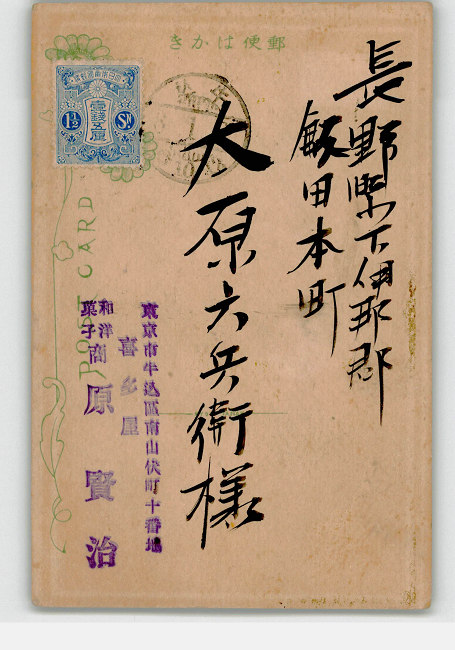 郵便はかき
長野県下伊那郡
飯田本町
大原六兵衛様
東京市牛込區南山伏町十番地
喜乡屋
和洋菓子商
原賢治
POST CARD
壹錢五厘
1½ SN